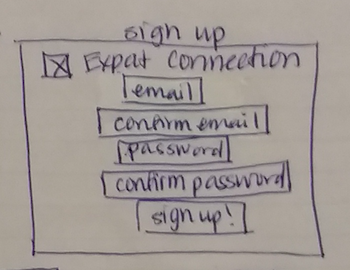 sign up
Expat Connection
email
confirm email
password
confirm password
sign up!